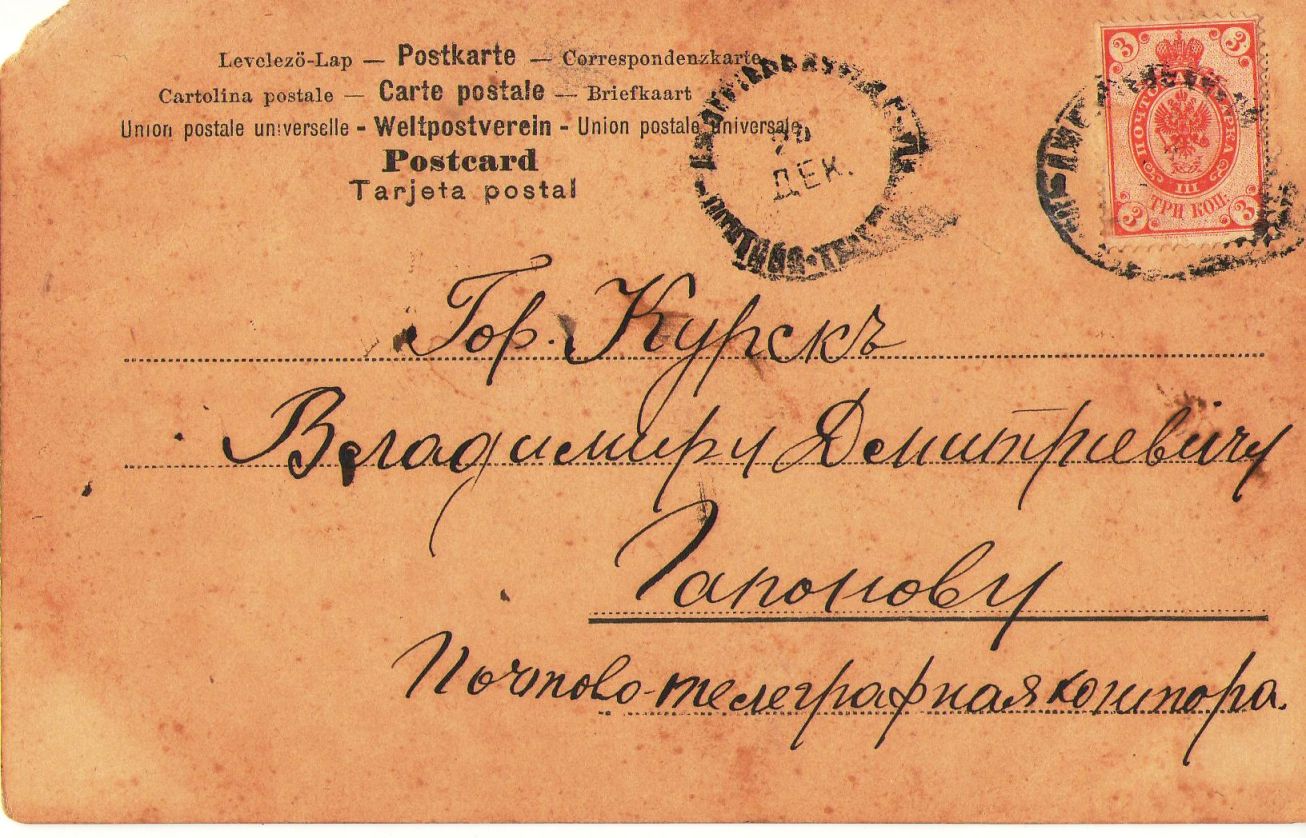 Levelező-Lap — Postkarte — Correspondenzkarte
Cartolina postale — Carte postale — Briefkaart
Union postale universelle - Weltpostverein - Union postale universale
Postcard
Tarjeta postal
ДЕК.
3 3
ПОЧТОВАЯ МАРКА
III
ТРИ КОП.
3 3
Гор. Курскъ
Владимиру Дмитріевичу
Гапонову
Почтово-телеграфная контора.